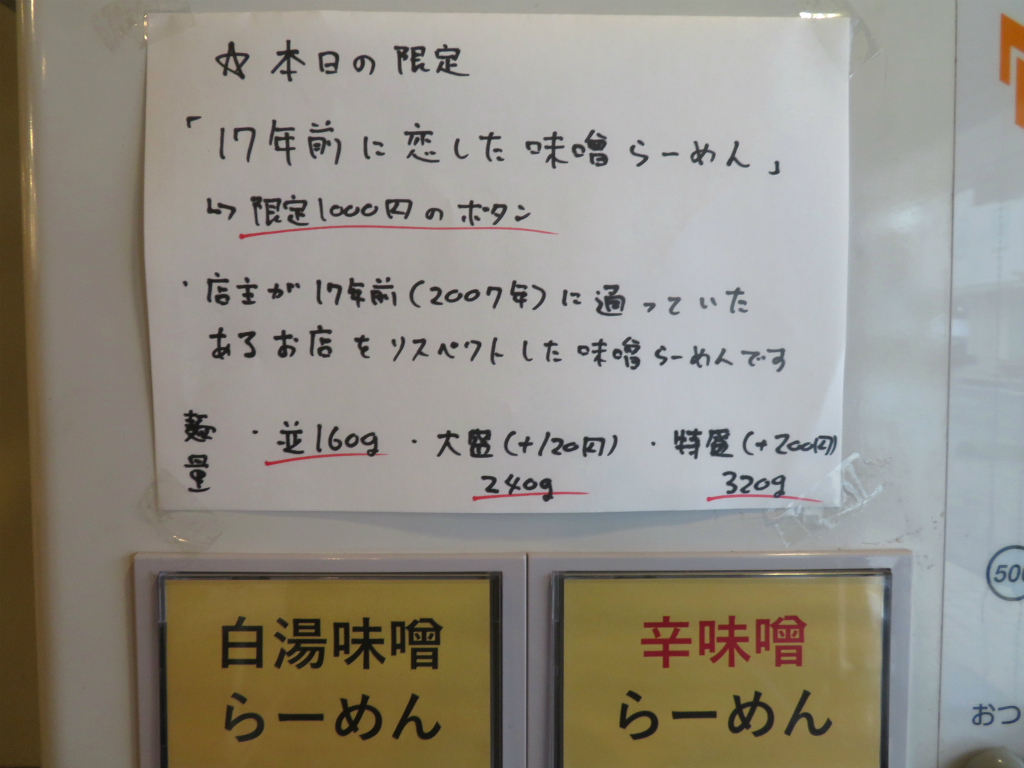 ☆ 本日の限定
「17年前に恋した味噌らーめん」
↳ 限定1000円のボタン
・店主が17年前(2007年)に通っていた
あるお店をリスペクトした味噌らーめんです
麺量 ・並160g ・大盛(+120円) ・特盛(+200円)
240g 320g
白湯味噌
らーめん
辛味噌
らーめん
500
おつ